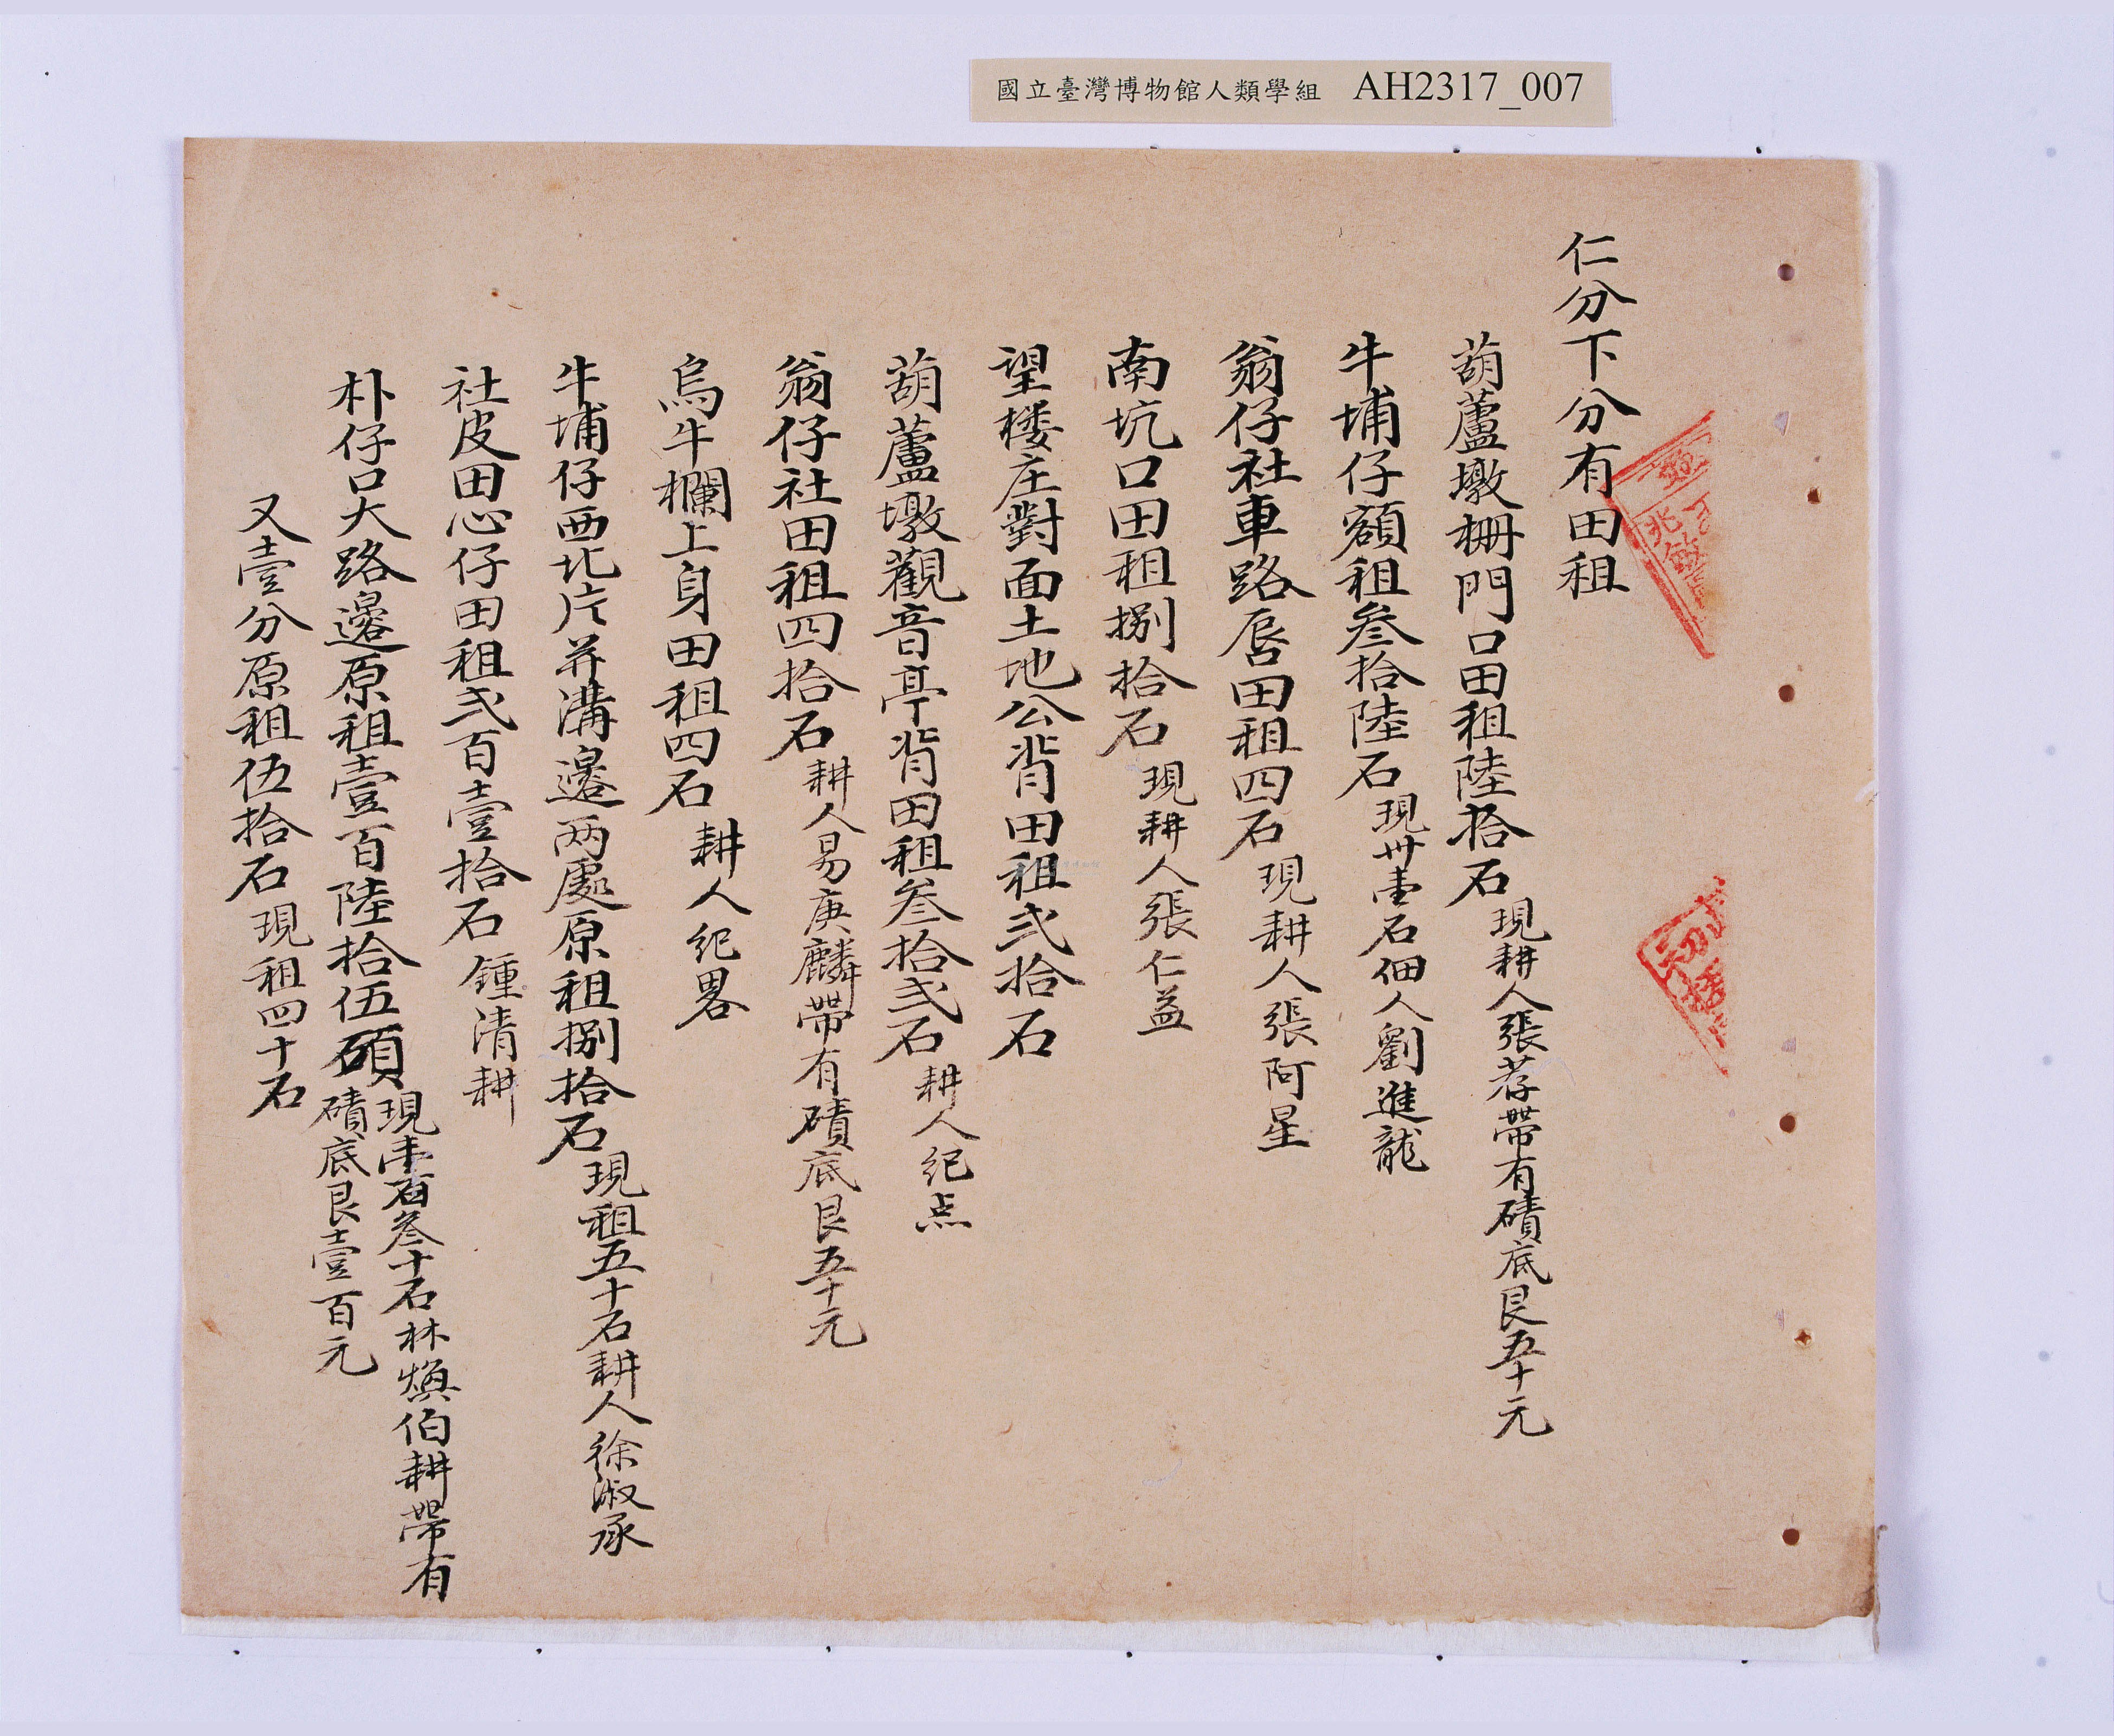 國立臺灣博物館人類學組 AH2317_007
仁分下分有田租
葫蘆墩柵門口田租陸拾石現耕人張荐帶有磧底艮五十元
牛埔仔額租叁拾陸石現卅壹石佃人劉進龍
翁仔社車路唇田租四石現耕人張阿星
南坑口田租捌拾石現耕人張仁益
望楼庄對面土地公背田租弍拾石
葫蘆墩觀音亭背田租叁拾弍石耕人紀点
翁仔社田租四拾石耕人易庚麟帶有磧底艮五十元
烏牛欄上身田租四石耕人紀畧
牛埔仔西北片并溝邊两處原租捌拾石現租五十石耕人徐淑承
社皮田心仔田租弍百壹拾石鍾清耕
朴仔口大路邊原租壹百陸拾伍碩現壹百叁十石林煥伯耕帶有
磧底艮壹百元
又壹分原租伍拾石現租四十石